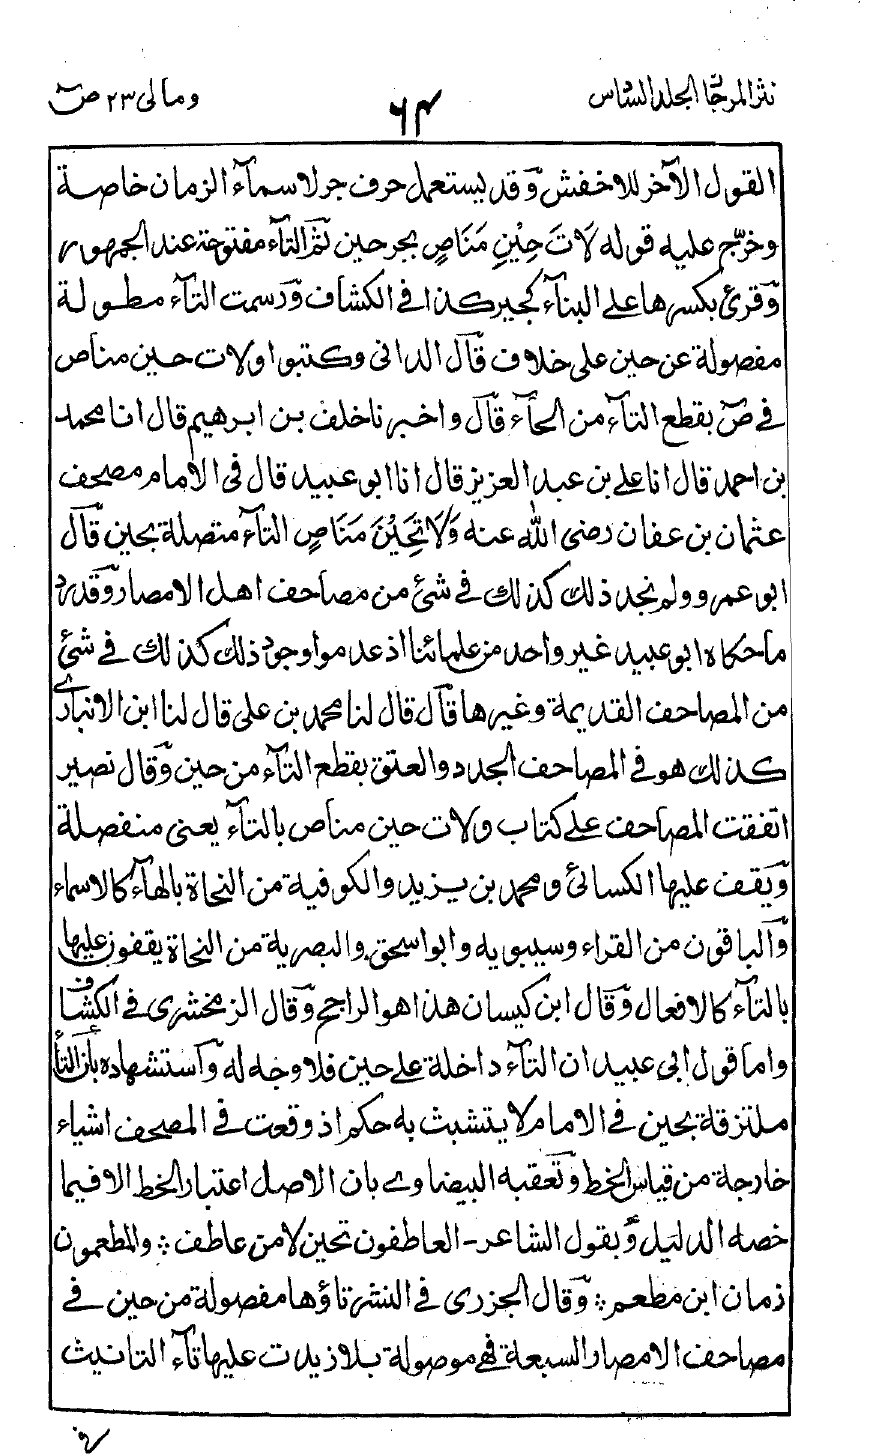 نثر المرجان الجلد السادس
٦٤
ومالى ٢٣ صۤ
القول الآخر للاخفش وقد يستعمل حرف جر لاسمآء الزمان خاصة
وخرّج عليه قوله لَاتَ حِيْنِ مَنَاصٍ بجر حين ثم التآء مفتوحة عند الجمهور
وقرئ بكسرها على البنآء كجير كذا فى الكشاف ورسمت التآء مطولة
مفصولة عن حين على خلاف قال الدانى وكتبوا ولات حين مناص
فى صۤ بقطع التآء من الحآء قال واخبرنا خلف بن ابرهيم قال انا محمد
بن احمد قال انا على بن عبد العزيز قال انا ابو عبيد قال فى الامام مصحف
عثمان بن عفان رضى الله عنه وَلَا تَحِيْنَ مَنَاصٍ التآء متصلة بحين قال
ابو عمرو ولم نجد ذلك كذلك فى شئ من مصاحف اهل الامصار وقد رد
ما حكاه ابو عبيد غير واحد من علمائنا اذ عدموا وجود ذلك كذلك فى شئ
من المصاحف القديمة وغيرها قال قال لنا محمد بن على قال لنا ابن الانبارى
كذلك هو فى المصاحف الجدد والعتق بقطع التآء من حين وقال نصير
اتفقت المصاحف على كتاب ولات حين مناص بالتآء يعنى منفصلة
ويقف عليها الكسائى ومحمد بن يزيد والكوفية من النحاة بالهآء كالاسماء
والباقون من القراء وسيبويه وابو اسحق والبصرية من النحاة يقفون عليها
بالتآء كالافعال وقال ابن كيسان هذا هو الراجح وقال الزمخشرى فى الكشاف
واما قول ابى عبيد ان التآء داخلة على حين فلا وجه له واستشهاده بأن التآء
ملتزقة بحين فى الامام لا يتشبث به حكم اذ وقعت فى المصحف اشياء
خارجة من قياس الخط وتعقبه البيضاوى بان الاصل اعتبار الخط الا فيما
خصه الدليل وبقول الشاعر- العاطفون تحين لا من عاطف ؞ والمطعمون
زمان ابن مطعم ؞ وقال الجزرى فى النشر تاؤها مفصولة من حين فى
مصاحف الامصار السبعة فهى موصولة بلا زيدت عليها تآء التانيث